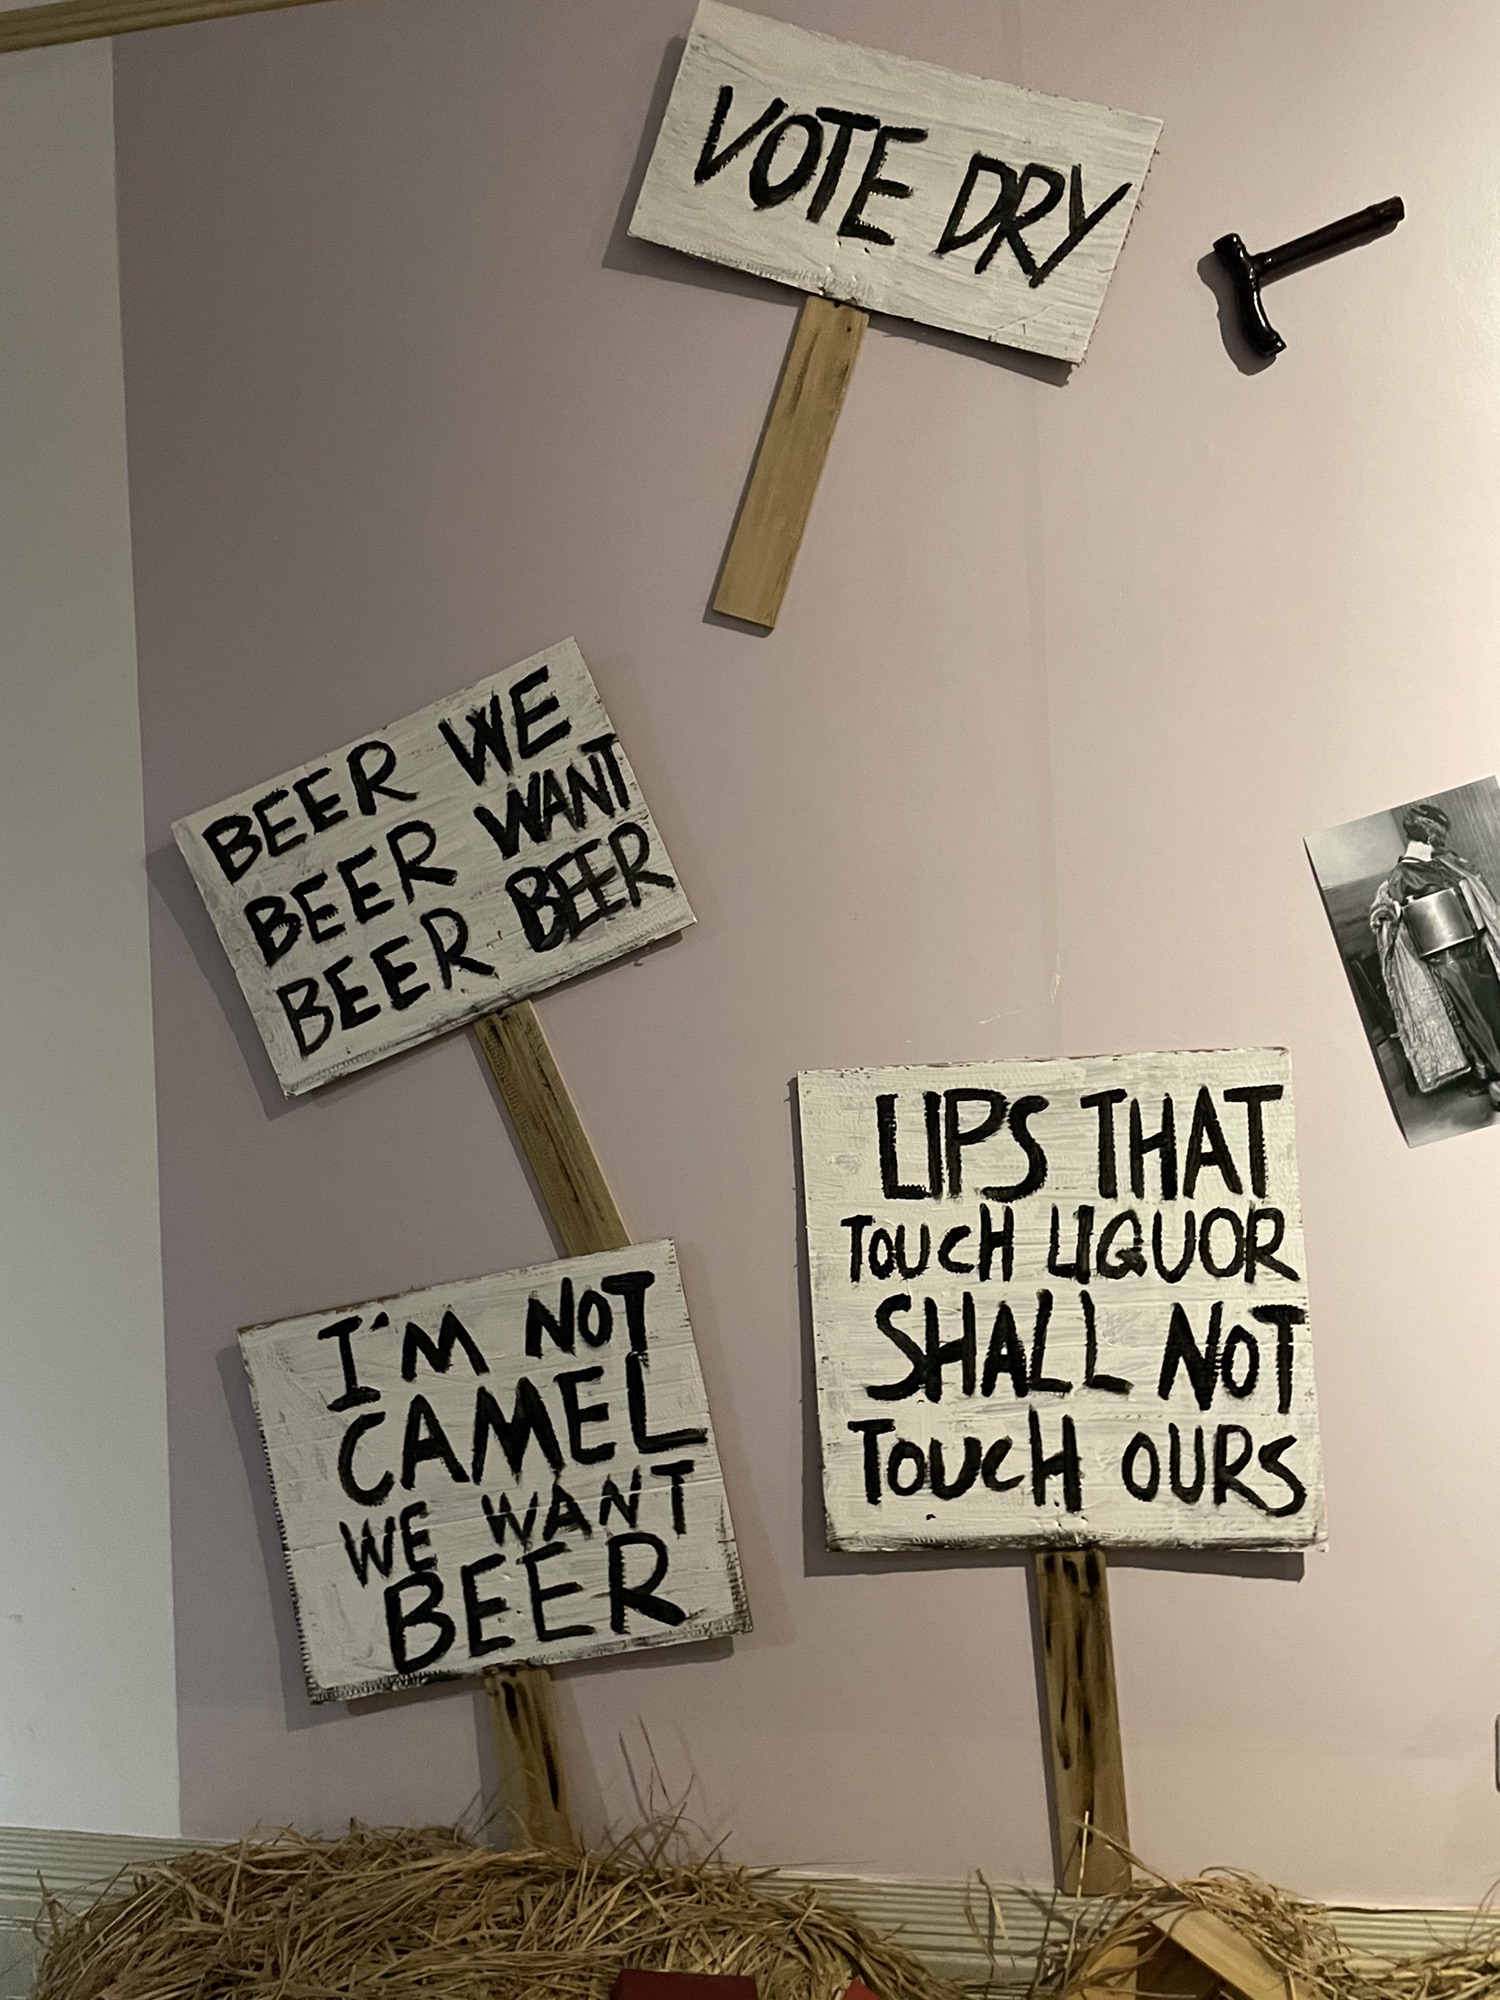 VOTE DRY
BEER WE
BEER WANT
BEER BEER
I'M NOT
CAMEL
WE WANT
BEER
LIPS THAT
TOUCH LIQUOR
SHALL NOT
TOUCH OURS